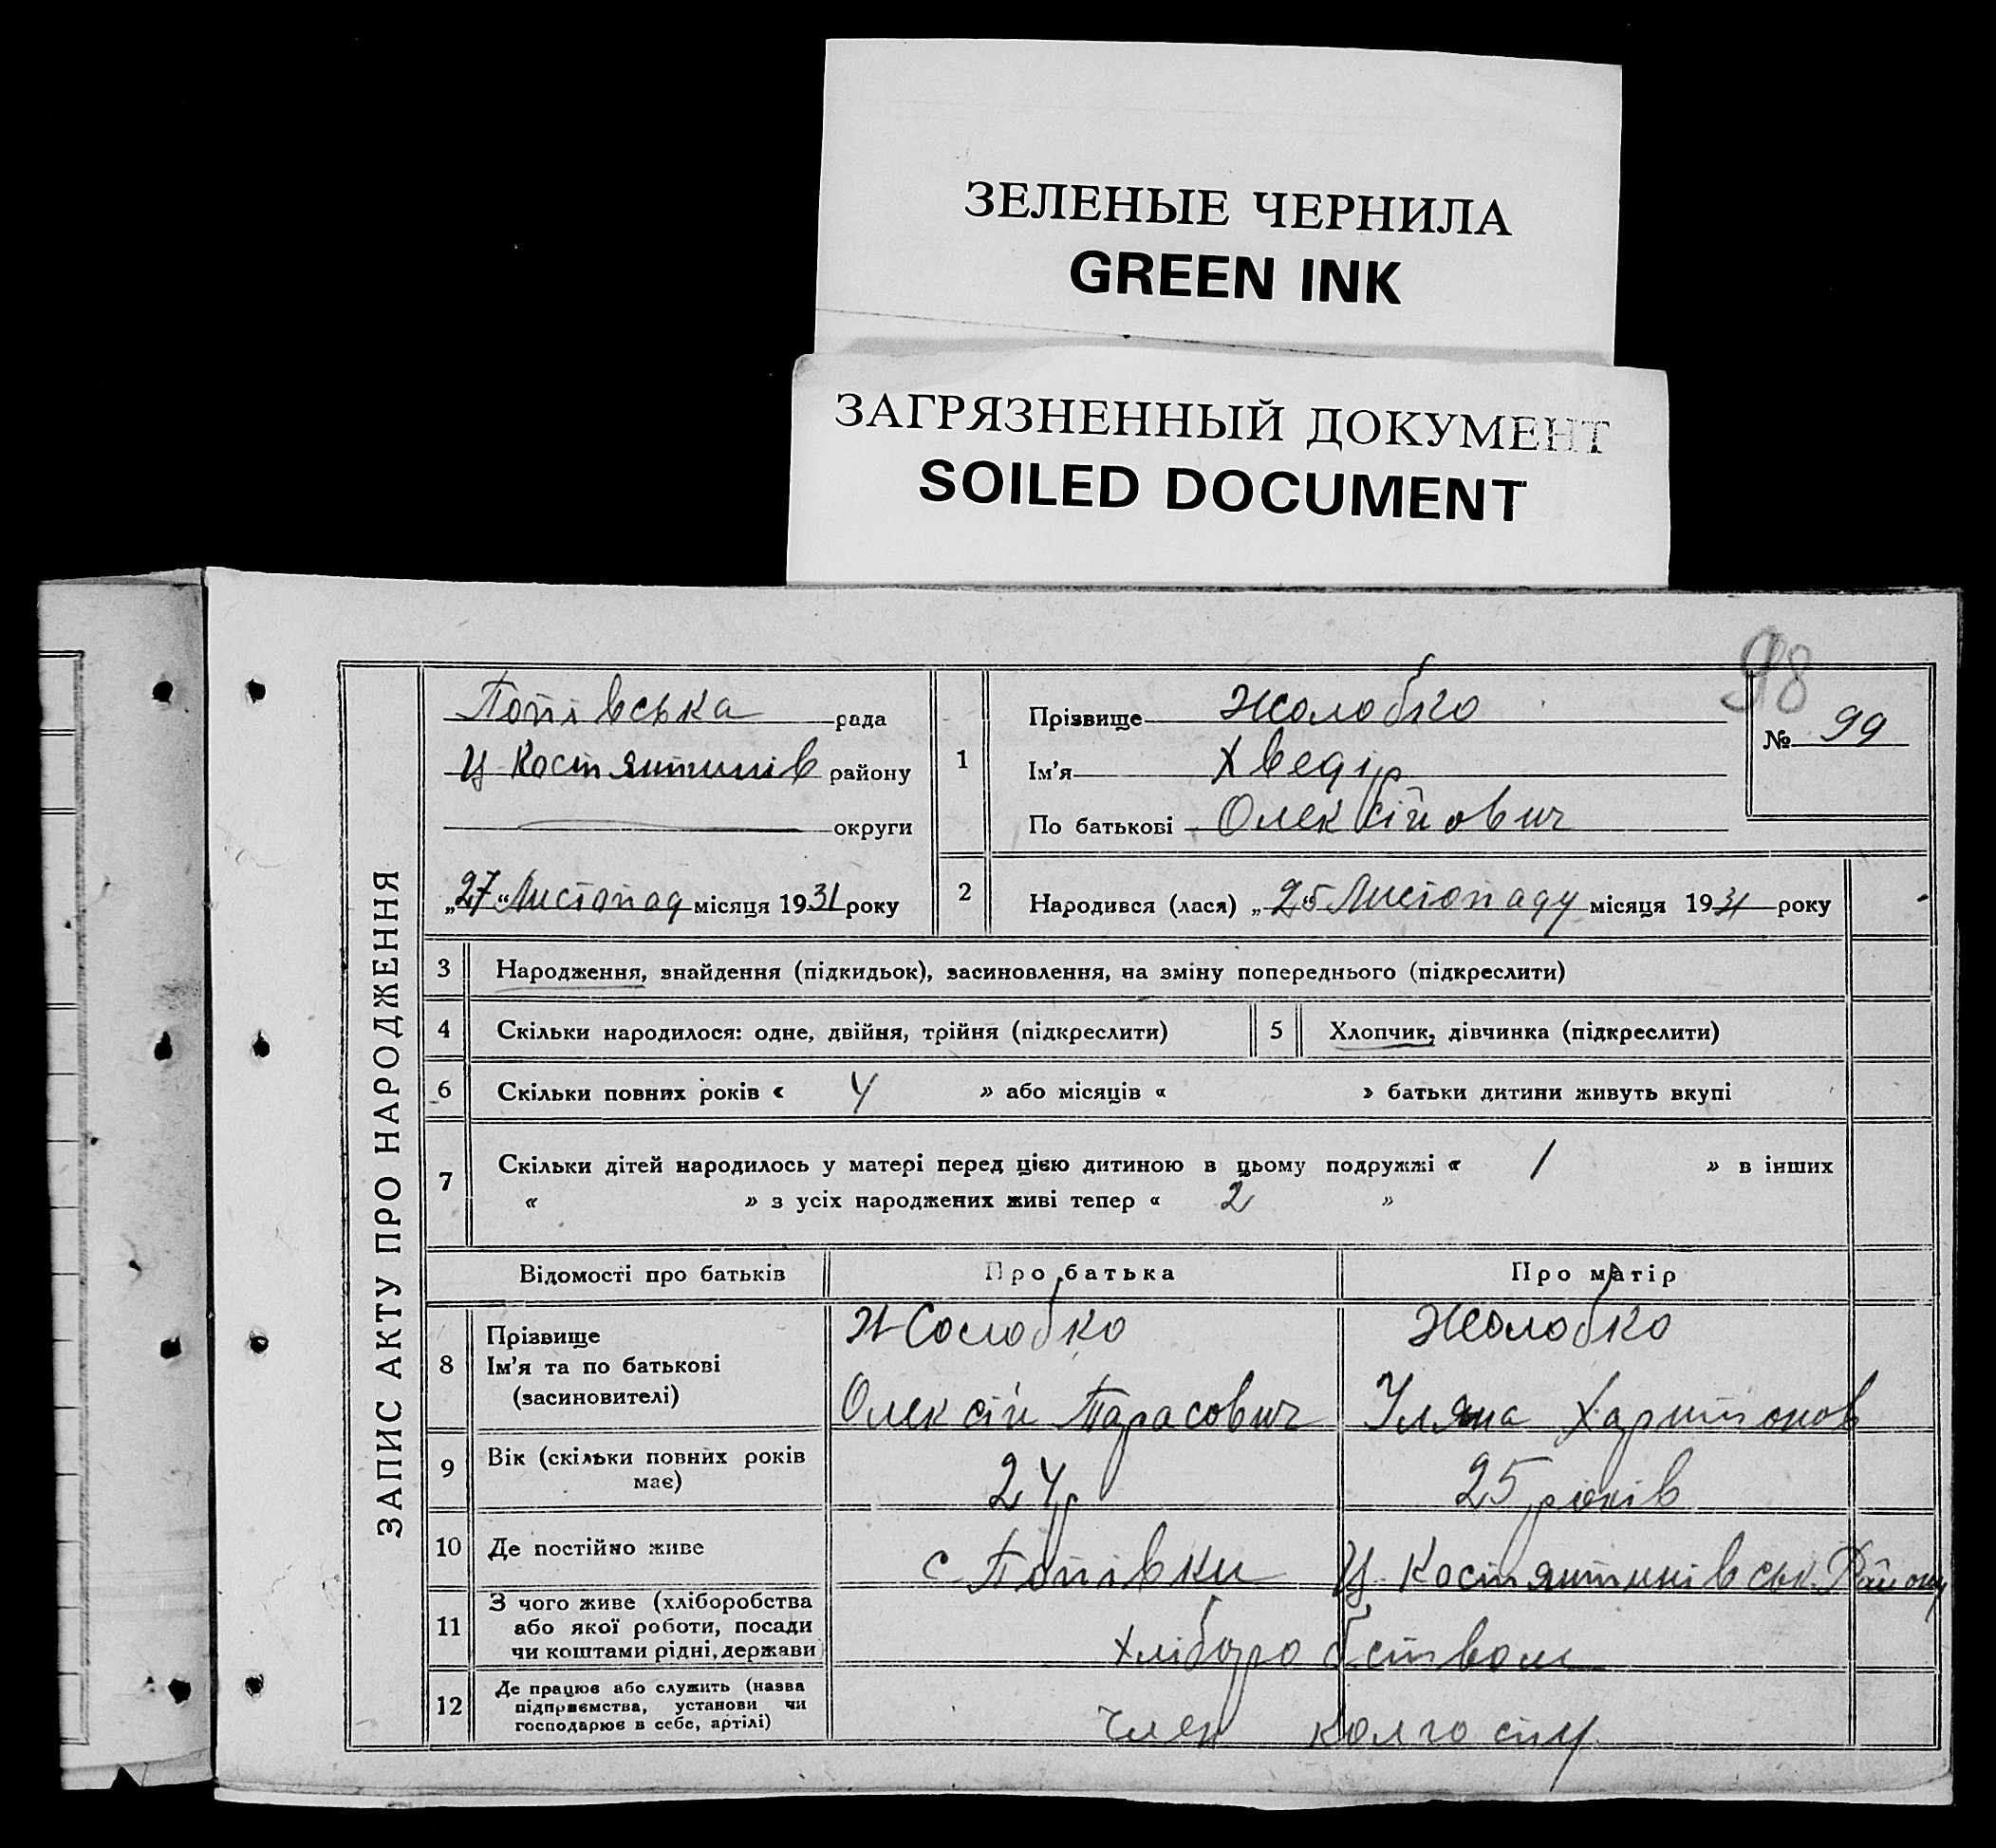 ЗЕЛЕНЫЕ ЧЕРНИЛА
GREEN INK
ЗАГРЯЗНЕННЫЙ ДОКУМЕНТ
SOILED DOCUMENT
98
ЗАПИС АКТУ ПРО НАРОДЖЕННЯ
Попівська рада
Ц Костянтинів району
округи
„27“ Листопад місяця 1931 року
1
Прізвище Жолобко
Ім'я Хведір
По батькові Олексійович
№ 99
2 Народився (лася) „25 Листопаду місяця 1931 року
3 Народження, знайдення (підкидьок), засиновлення, на зміну попереднього (підкреслити)
4 Скільки народилося: одне, двійня, трійня (підкреслити) 5 Хлопчик, дівчинка (підкреслити)
6 Скільки повних років « 4 » або місяців « » батьки дитини живуть вкупі
7 Скільки дітей народилось у матері перед цією дитиною в цьому подружжі « 1 » в інших
« » з усіх народжених живі тепер « 2 »
Відомості про батьків Про батька Про матір
8 Прізвище Жолобко Жолобко
Ім'я та по батькові
(засиновителі) Олексій Тарасович Уляна Харитонов
9 Вік (скільки повних років
має) 24р 25 років
10 Де постійно живе с Попівки Ц Костянтинівськ Району
11 З чого живе (хліборобства
або якої роботи, посади
чи коштами рідні, держави) хліборобством
12 Де працює або служить (назва
підприємства, установи чи
господарює в себе, артілі) член колгоспу